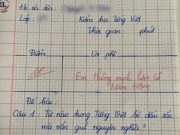 Họ và tên:
Lớp: Kiểm tra Tiếng Việt
Thời gian: phút
Điểm Lời phê
Em không muốn
Đề bài:
Câu 1. Từ nào trong Tiếng Việt bỏ dấu sắc
mà vẫn giữ nguyên nghĩa?